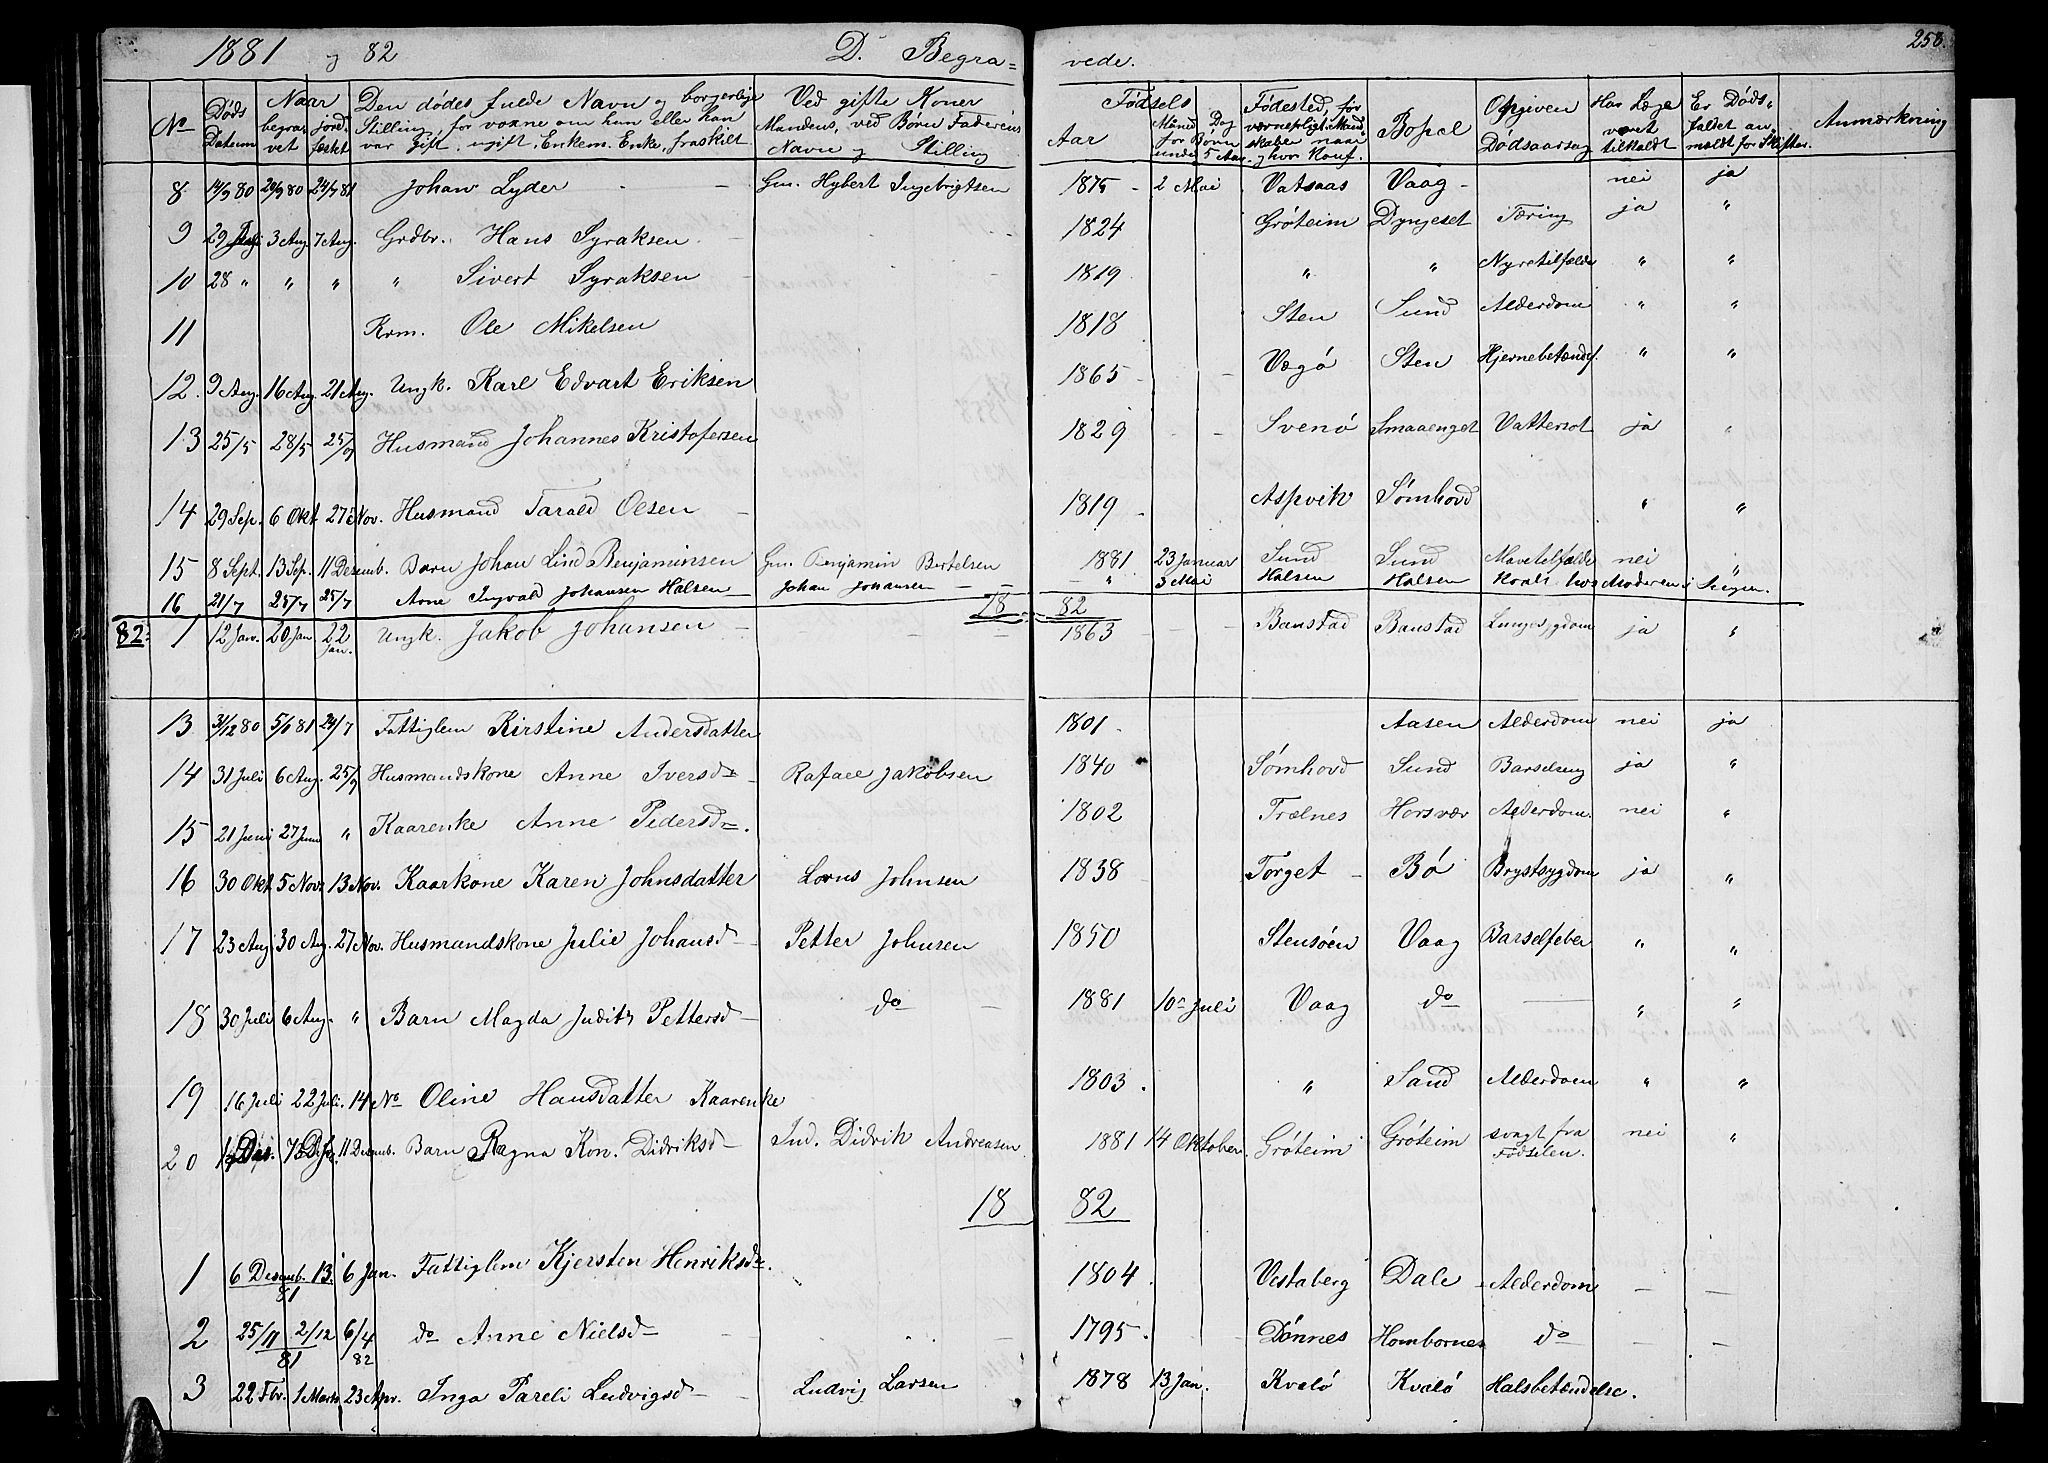 1881 og 82 D. Begravede. 258.
No Døds Datum Naar begravet jordfæstet Den dødes fulde Navn og borgerlige Stilling, for voxne om hun eller han var gift, ugift, Enkem. Enke, fraskilt Ved gifte Koner Mandens, ved Børn Faderens Navn og Stilling Fødsels Aar Maaned Dag for Børn under 5 Aar Fødested, for værnepligt. Mandskaber naar og hvor Konf. Bopæl Opgiven Dødsaarsag Har Læge været tilkaldt Er Dødsfaldet anmeldt for Skifter. Anmærkning
8 14/9 80 20/9 80 24/7 81 Johan Lyder Gm. Hybert Ingebrigtsen 1875 2 Mai Vatsaas Vaag nei ja
9 29 Juli 3 Aug. 7 Aug. Grdbr. Hans Syraksen 1824 Grøteim Dyngeset Tæring ja "
10 28 " " " " Sivert Syraksen 1819 " " Nyretilfælde " "
11 Krm. Ole Mikelsen 1818 Sten Sund Alderdom " "
12. 9 Aug. 16 Aug. 21 Aug. Ungk. Karl Edvart Eriksen 1865 Vægø Sten Hjernebetændels. " "
13 25/5 28/5 25/9 Husmand Johannes Kristofersen 1829 Svenø Smaaenget Vattersot ja "
14 29 Sep. 6 Okt. 27 Nov. Husmand Tarald Olsen 1819 Aspvik Sømhovd " "
15 8 Sept. 13 Sep. 11 Desemb. Barn Johan Lind Benjaminsen Gm. Benjamin Bertelsen 1881 23 Januar Sund Sund Mavetilfælde nei "
16 21/7 25/7 25/7 Arne Ingvald Johansen Halsen Johan Johansen " 3 Mai Halsen Halsen Kvalt hos Moderen i Sengen.
18 82
82: 1 12 Jan. 20 Jan 22 Jan. Ungk. Jakob Johansen 1863 Baustad Baustad Lungesygdom ja "
13 31/12 80 5/1 81 24/7 Fattiglem Kirstine Andersdatter 1801 Aasen Alderdom nei ja
14 31 Juli 6 Aug. 25/9 Husmandskone Anne Iversd Rafael Jakobsen 1840 Sømhovd Sund Barselseng ja "
15 21 Juni 27 Juni " Kaarenke Anne Pedersd. 1802 Trælnes Horsvær Alderdom. nei "
16 30 Okt. 5 Novr 13 Nov. Kaarkone Karen Johnsdatter Lorns Johnsen 1838 Torget Bø Brystsygdom ja "
17 23 Aug 30 Aug. 27 Nov. Husmandskone Julie Johansd Petter Johnsen 1850 Stensøen Vaag Barselfeber " "
18 30 Juli 6 Aug. " Barn Magda Judith Pettersd do 1881 10 Juli Vaag do " "
19 16 Juli 22 Juli. 14 No Oline Hansdatter Kaarenke 1803 " Sand Alderdom " "
20 11 Desemb. Barn Ragna Kon. Didriksd Ind. Didrik Andreasen 1881 14 Oktober. Grøteim Grøteim svagt fra Fødselen. nei "
18 82
1 6 Desemb. 13. 81 6 Jan. Fattiglem Kjersten Henriksd. 1804 Vestaberg Dale Alderdom
2 25/11 2/12 81 6/4 82 do Anne Nielsd 1795. Dønnes Hombornes do
3 22 Fbr. 1 Marts 23 Apr. Inga Pareli Ludvigsd Ludvig Larsen 1878 13 Jan. Kvalø Kvalø Halsbetændelse.